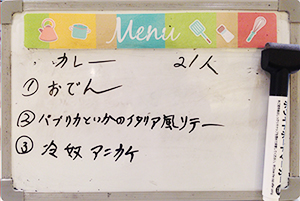 Menu
・カレー 21人
① おでん
② パプリカといかのイタリア風リテー
③ 冷奴 アニカケ